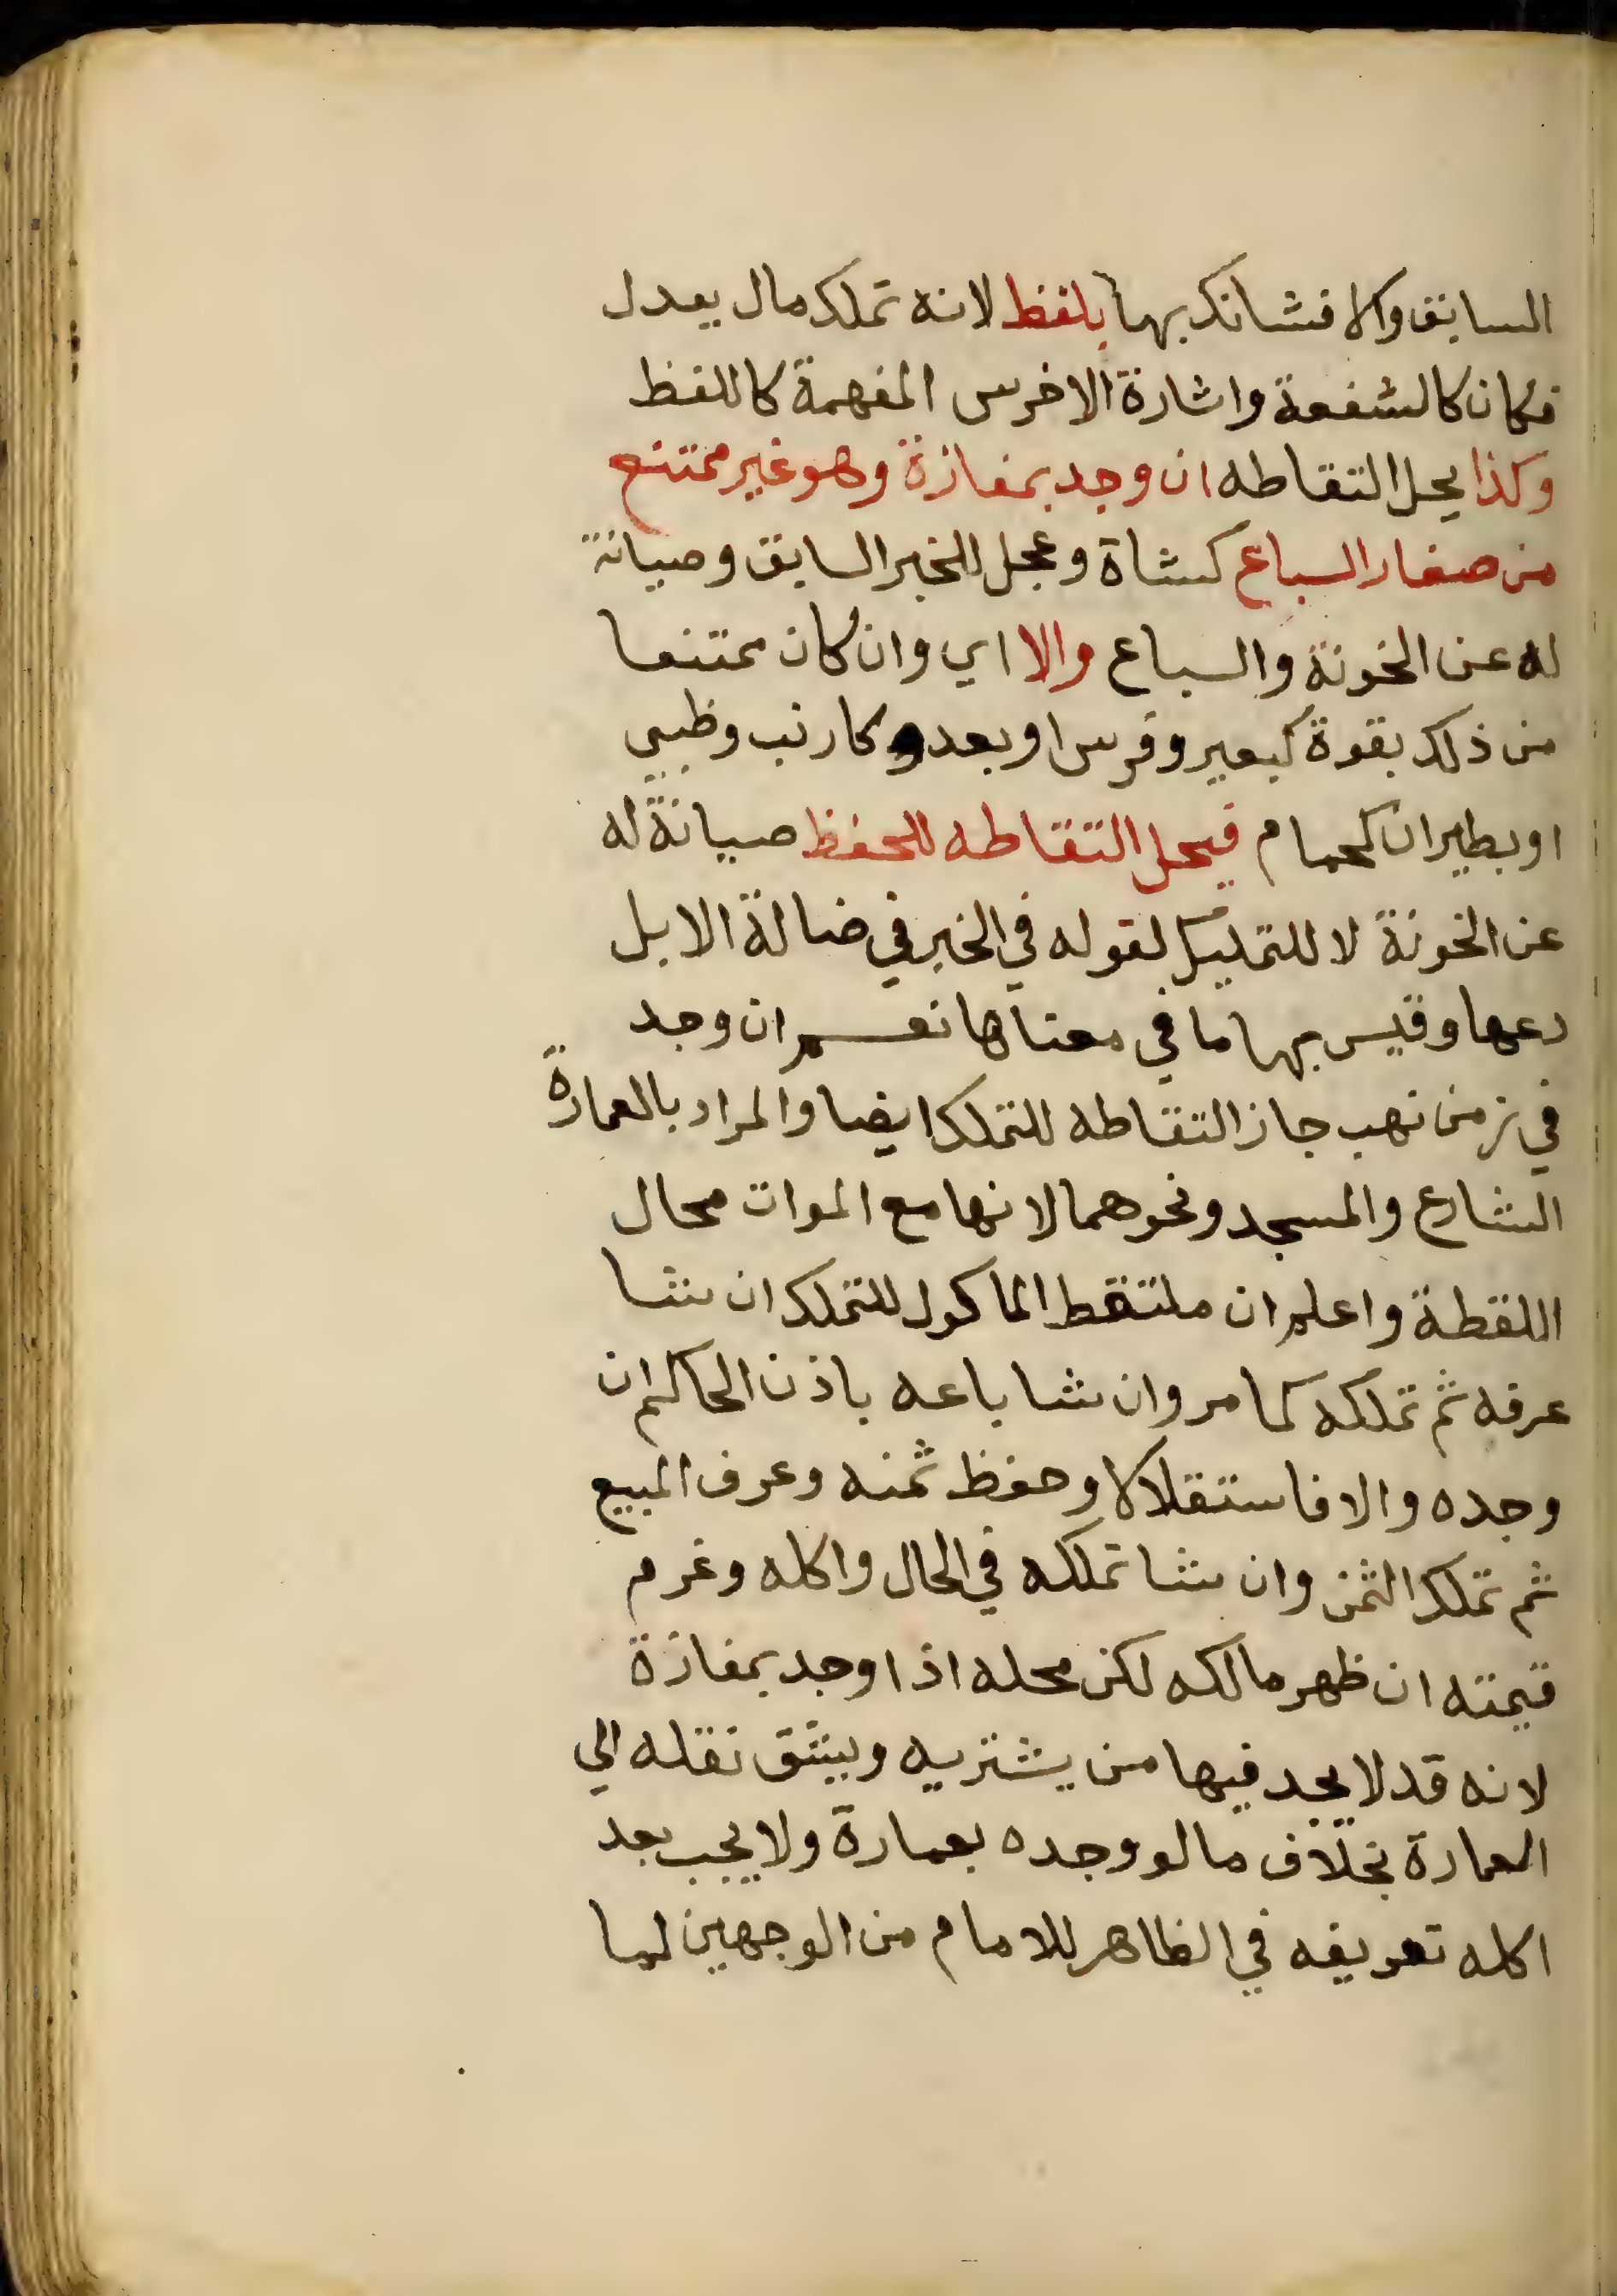 السابق والا فشانك بها بلفظ لانه تملك مال يعدل
فكان كالشفعة واشارة الاخرس المفهمة كاللفظ
وكذا يحل التقاطه ان وجد بمفازة وهو غير ممتنع
من صغار السباع كشاة وعجل للخبر السابق وصيانة
له عن الخونة والسباع والا اي وان كان ممتنعا
من ذلك بقوة كبعير وفرس او بعدو كارنب وظبي
او بطيران كحمام فيحل التقاطه للحفظ صيانة له
عن الخونة لا للتمليك لقوله في الخبر في ضالة الابل
دعها وقيس بها ما في معناها نعم ان وجد
في زمن نهب جاز التقاطه للتملك ايضا والمراد بالعمارة
الشارع والمسجد ونحوهما لانها مع الموات محال
اللقطة واعلم ان ملتقط الماكول للتملك ان شا
عرفه ثم تملكه كما مر وان شا باعه باذن الحاكم ان
وجده والا فاستقلالا وحفظ ثمنه وعرف المبيع
ثم تملك الثمن وان شا تملكه في الحال واكله وغرم
قيمته ان ظهر مالكه لكن محله اذا وجد بمفازة
لانه قد لا يجد فيها من يشتريه ويشق نقله الي
العمارة بخلاف ما لو وجده بعمارة ولا يجب بعد
اكله تعريفه في الظاهر للامام من الوجهين لما